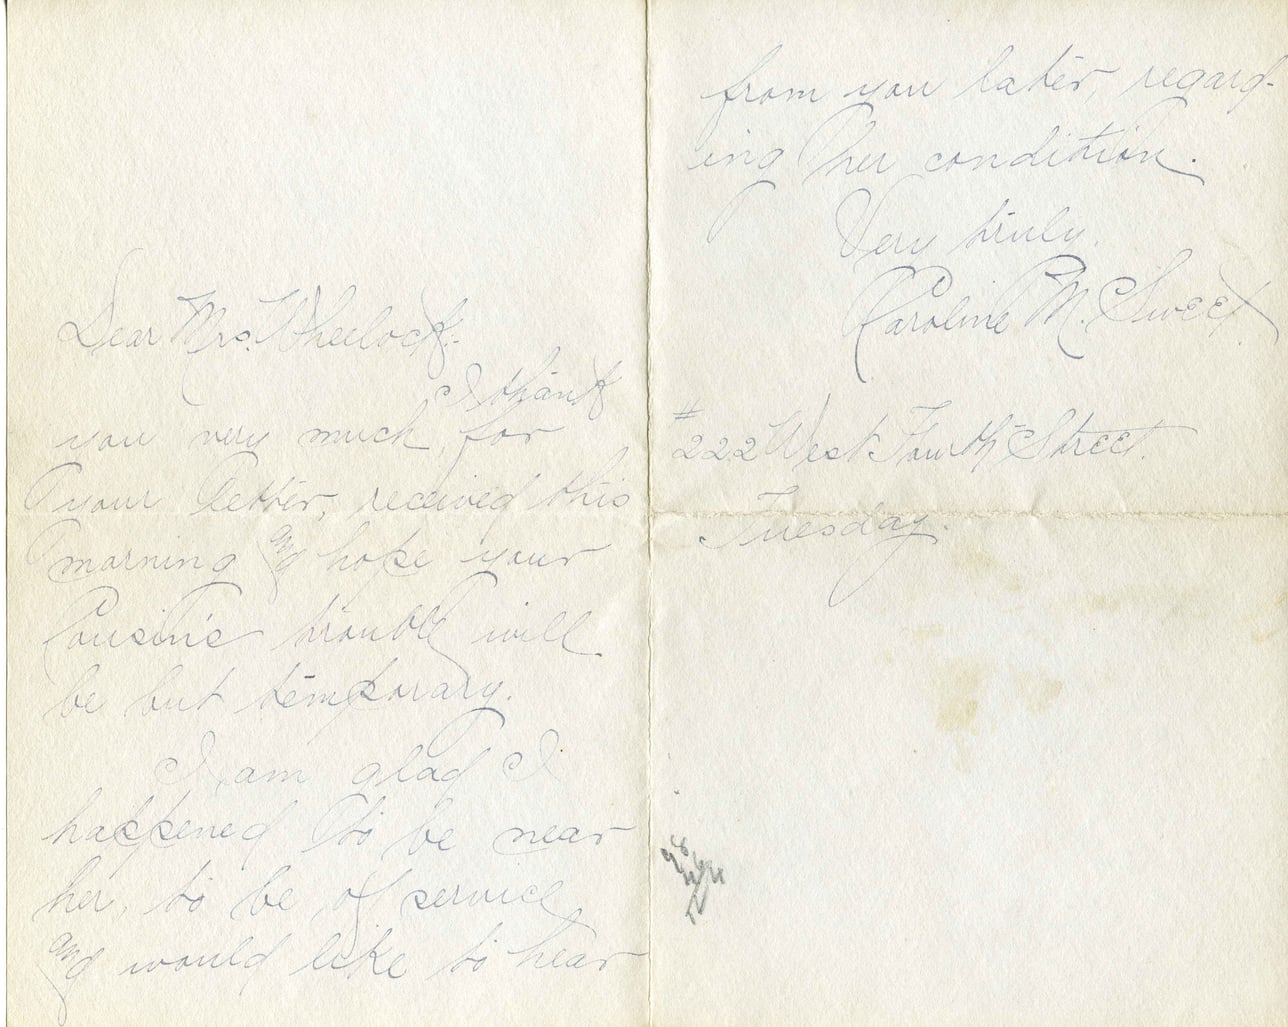 Dear Mrs. Wheelock:-
I thank
you very much, for
your letter, received this
morning and hope your
Cousin's trouble will
be but temporary.
I am glad I
happened to be near
her, to be of service
and would like to hear
from you later, regard-
ing her condition.
Very truly.
Caroline M. Sweet.
#222 West Fourth Street.
Tuesday.